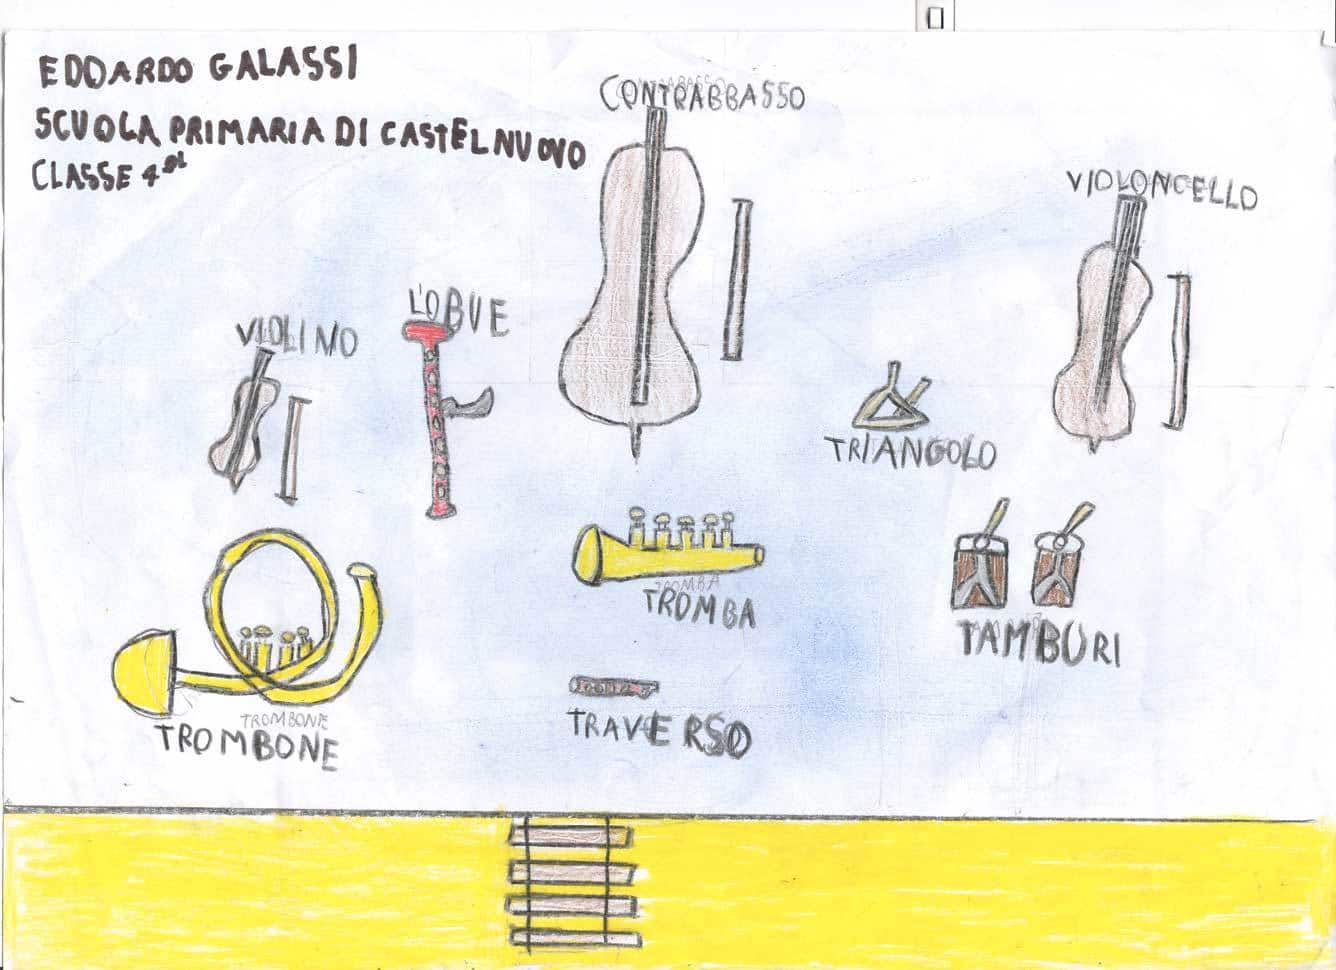 EDOARDO GALASSI
SCUOLA PRIMARIA DI CASTELNUOVO
CLASSE 4ª
CONTRABBASSO
VIOLONCELLO
L'OBUE
VIOLINO
TRIANGOLO
TROMBA
TROMBA
TAMBURI
TROMBONE
TROMBONE
TRAVERSO